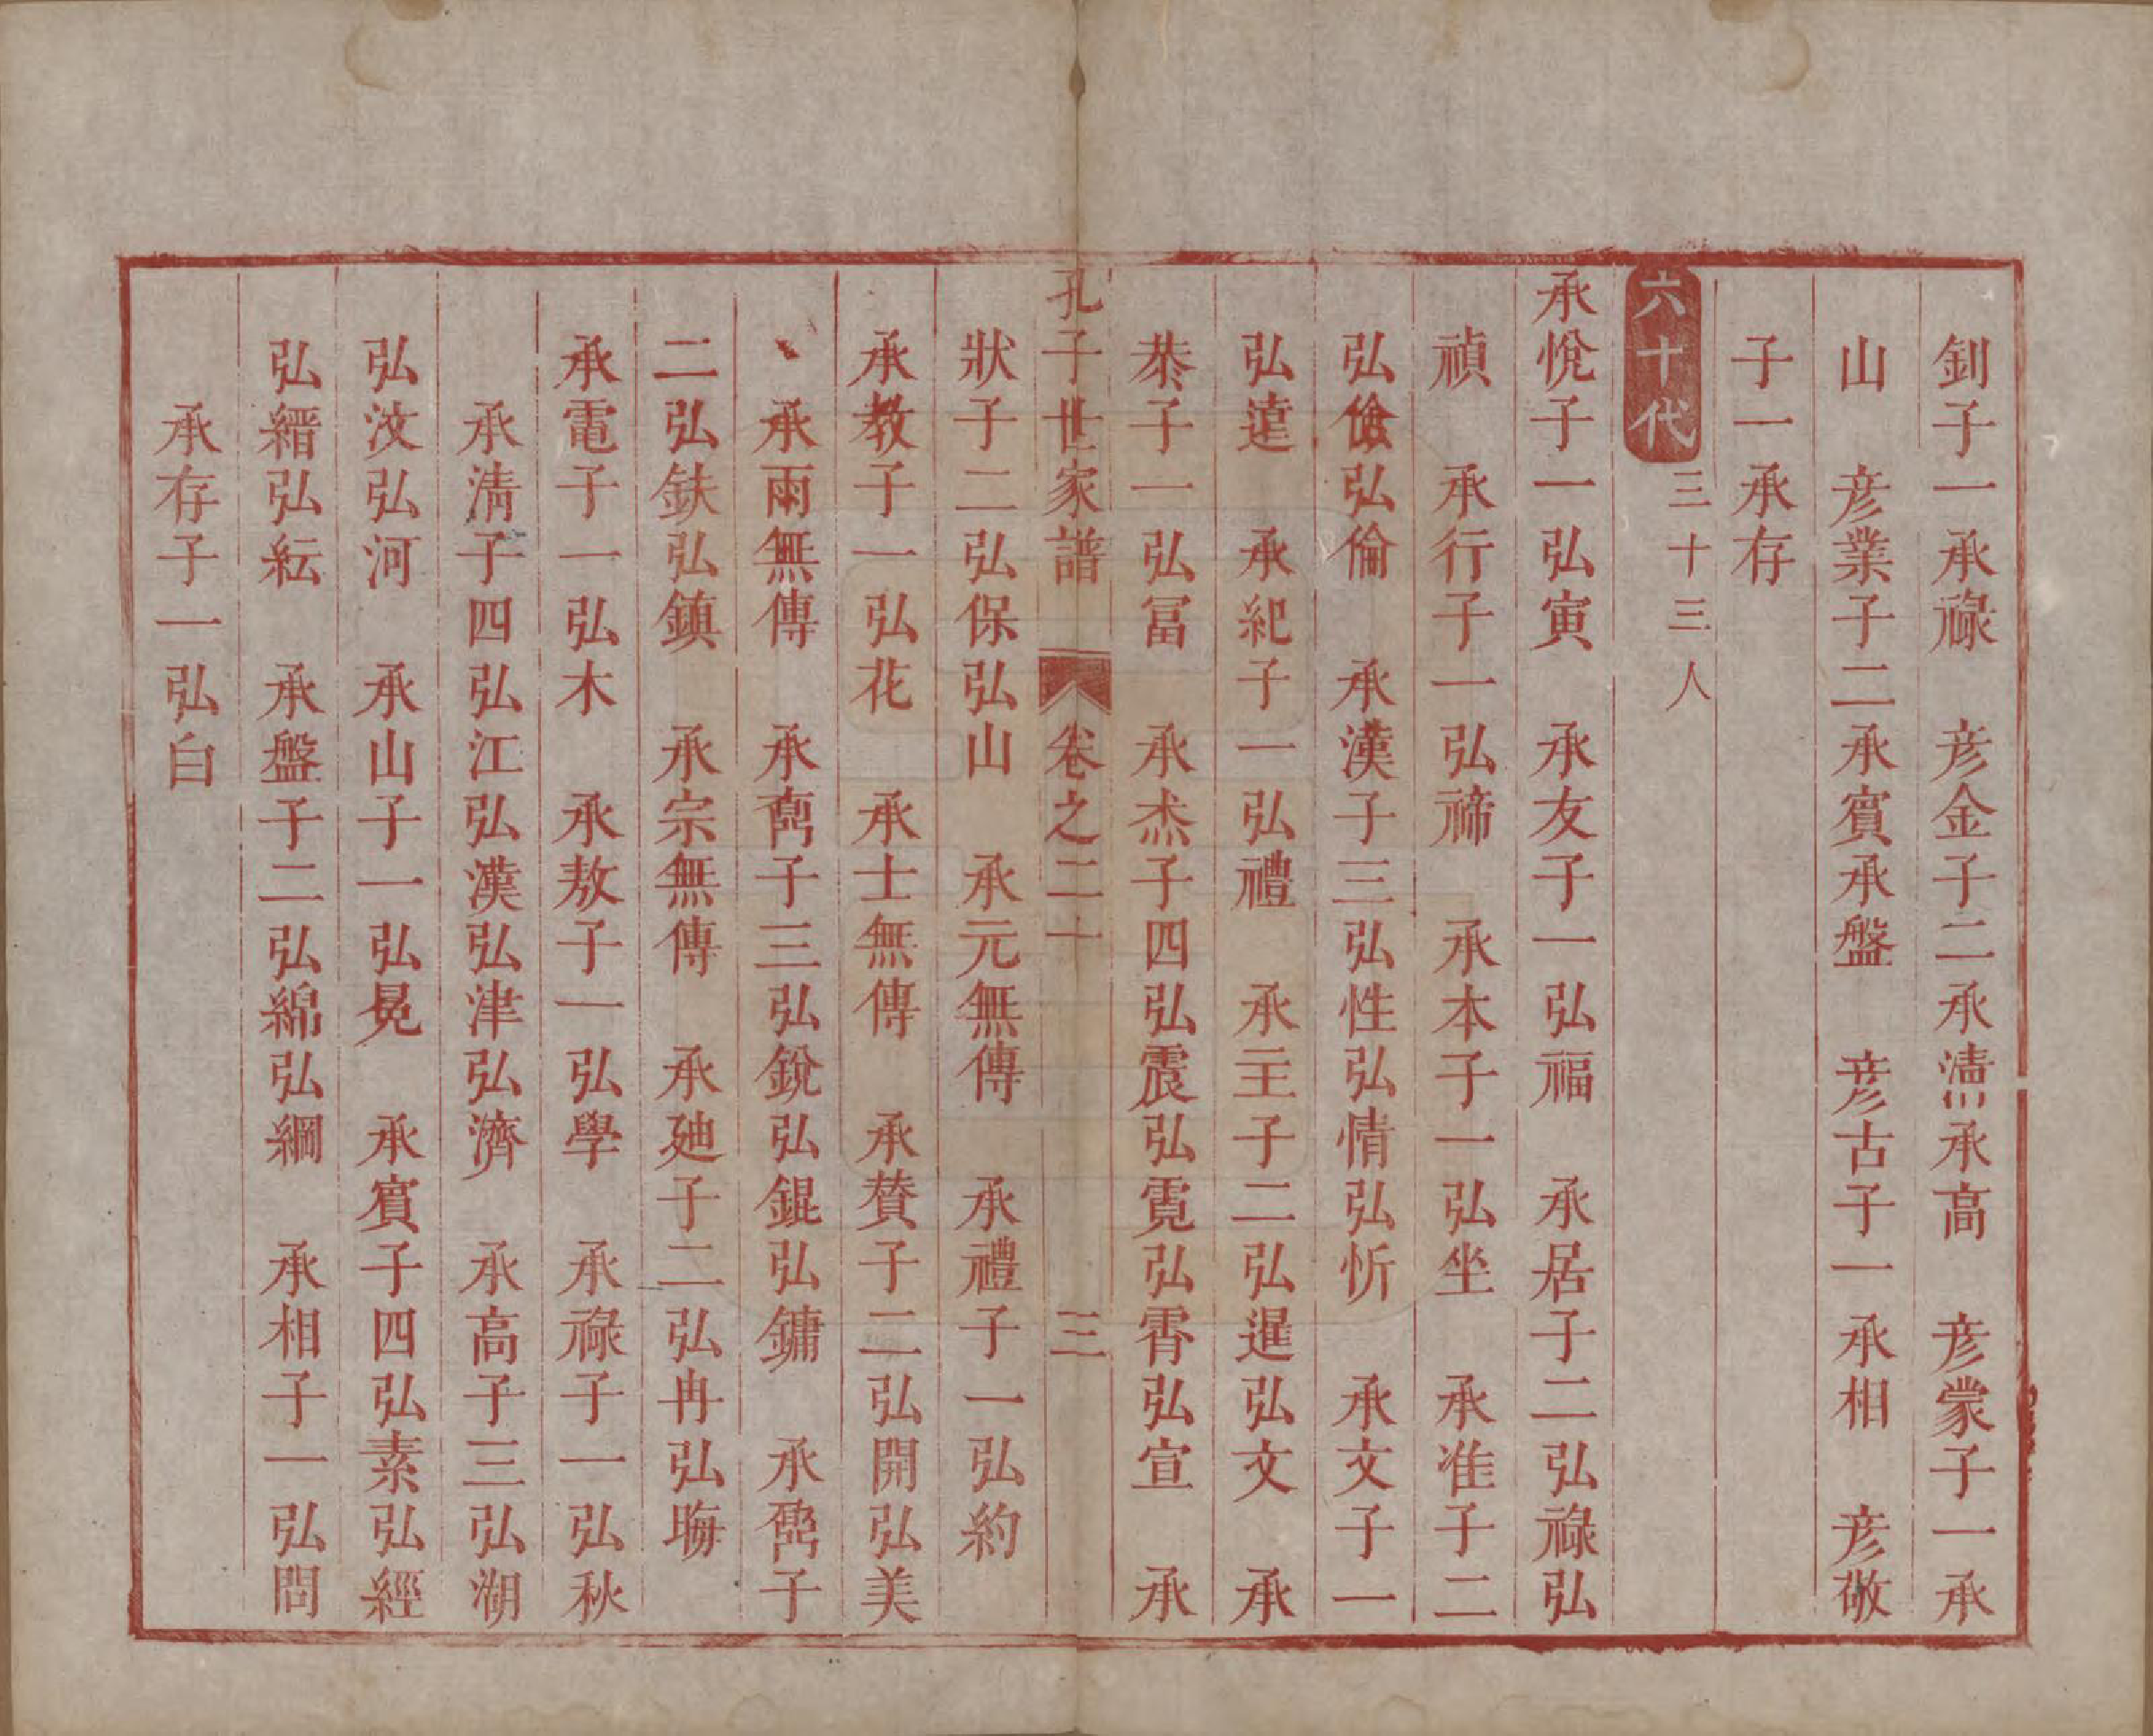 釗子一承祿　彦金子二承清承高　彦蒙子一承
山　彦業子二承賔承盤　彦古子一承相　彦敬
子一承存
六十代三十三人
承悅子一弘寅　承友子一弘福　承居子二弘祿弘
禎　承行子一弘禘　承本子一弘坐　承准子二
弘儉弘倫　承漢子三弘性弘情弘忻　承文子一
弘逵　承紀子一弘禮　承主子二弘暹弘文　承
恭子一弘冨　承杰子四弘震弘霓弘霄弘宣　承
孔子世家譜　卷之二十　三
狀子二弘保弘山　承元無傳　承禮子一弘約
承教子一弘花　承士無傳　承賛子二弘開弘美
承雨無傳　承卨子三弘銳弘錕弘鏞　承子
二弘鈇弘鎮　承宗無傳　承廸子二弘冉弘晦
承電子一弘木　承敖子一弘學　承祿子一弘秋
承淸子四弘江弘漢弘津弘濟　承高子三弘潮
弘汶弘河　承山子一弘晃　承賔子四弘素弘經
弘縉弘紜　承盤子二弘綿弘綱　承相子一弘問
承存子一弘白